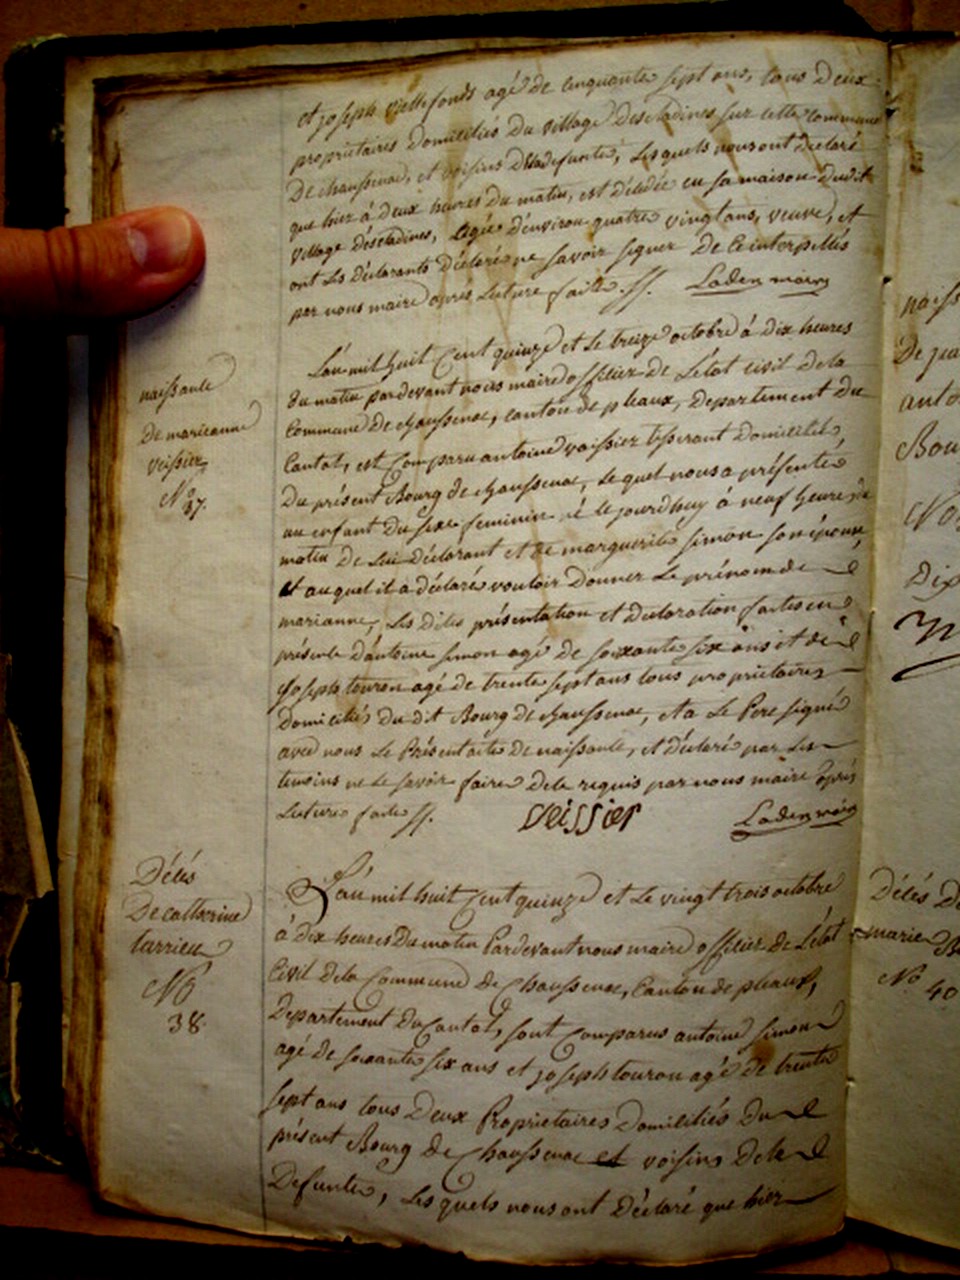 et joseph viellefonds agé de cinquante sept ans, tous Deux
proprietaires Domiciliés Du village Descladines sur cette commune
De chaussenac, et voisins Deladefunte, Lesquels nous ont Declaré
que hier à deux heures Du matin, est décédée en sa maison Dudit
village Descladines, agée D'environ quatre vingt ans, veuve, et
ont Les Déclarants Déclaré ne savoir signer De Ce interpellés
par nous maire après Lecture faite. //. Laden maire
naissance
De marieanne
veissier
No
37.
L'an mil huit Cent quinze et Le treize octobre à Dix heures
du matin pardevant nous maire officier de L'état civil de la
Commune De chaussenac, canton de pleaux, Departement Du
Cantal, est Comparu antoine vaissier tisserant Domicilié
Du présent Bourg de chaussenac, Lequel nous a présenté
un enfant Du sexe feminin né le jourdhuy à neuf heure du
matin De Lui Déclarant et de marguerite simon son épouse,
et auquel il a déclaré vouloir Donner Le prénom de
marianne, Les Dites présentation et Declaration faites en
présence D'antoine simon agé De soixante six ans et de
joseph touron agé de trente sept ans tous proprietaires
Domiciliés Du dit Bourg de chaussenac, et a Le Pere signé
avec nous Le Présent acte De naissance, et déclaré par Les
temoins ne Le savoir faire De ce requis par nous maire après
Lecture faite //. veissier Laden maire
Décés
De catherine
tarrieu
No
38.
L'an mil huit Cent quinze et Le vingt trois octobre
à Dix heures Du matin Pardevant nous maire officier De L'état
Civil De la Commune De Chaussenac, Canton de pleaux,
Departement Du Cantal, sont Comparus antoine simon
agé De soixante six ans et joseph touron agé De trente
sept ans tous Deux Proprietaires Domiciliés Du
présent Bourg de Chaussenac et voisins De la
Defunte, Lesquels nous ont Déclaré que hier
naiss
De
anto
Bou
No
Dix
Décés De
marie
No 40